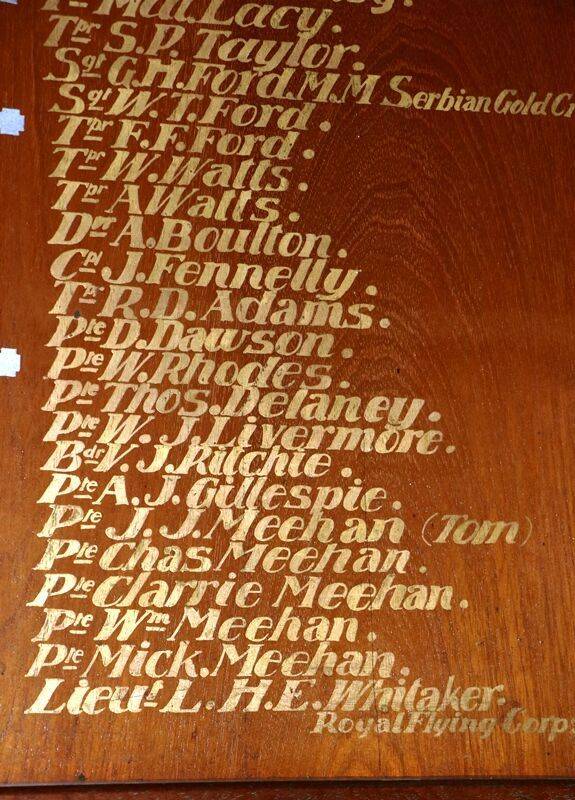 Mat. Lacy.
Tpr S.P. Taylor.
Sgt G.H. Ford. M.M Serbian Gold
Sgt W.T. Ford.
Tpr F.F. Ford.
Tpr W. Watts.
Tpr A Watts.
Dvr A. Boulton.
Cpl J. Fennelly.
Tpr R.D. Adams.
Pte D. Dawson.
Pte W. Rhodes.
Pte Thos. Delaney.
Pte W. J. Livermore.
Bdr V. J. Ritchie.
Pte A. J. Gillespie.
Pte J. J. Meehan (Tom)
Pte Chas Meehan.
Pte Clarrie Meehan.
Pte Wm Meehan.
Pte Mick. Meehan.
Lieut L. H.E. Whitaker.
Royal Flying Corps